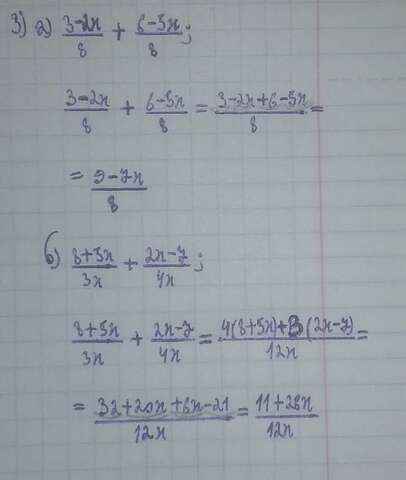 3) а) (3-2x)/8 + (6-5x)/8;
(3-2x)/8 + (6-5x)/8 = (3-2x+6-5x)/8 =
= (9-7x)/8
б) (8+5x)/3x + (2x-7)/4x;
(8+5x)/3x + (2x-7)/4x = (4(8+5x)+3(2x-7))/12x =
= (32+20x+6x-21)/12x = (11+26x)/12x